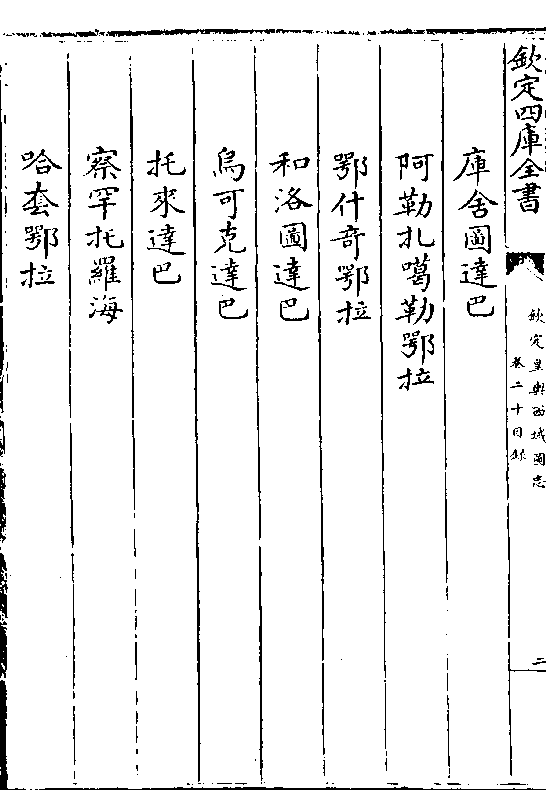 欽定四庫全書
欽定皇輿西域圖志
卷二十目錄
二
庫舍圖達巴
阿勒扎噶勒鄂拉
鄂什竒鄂拉
和洛圖達巴
烏可克達巴
托來達巴
察罕托羅海
哈套鄂拉